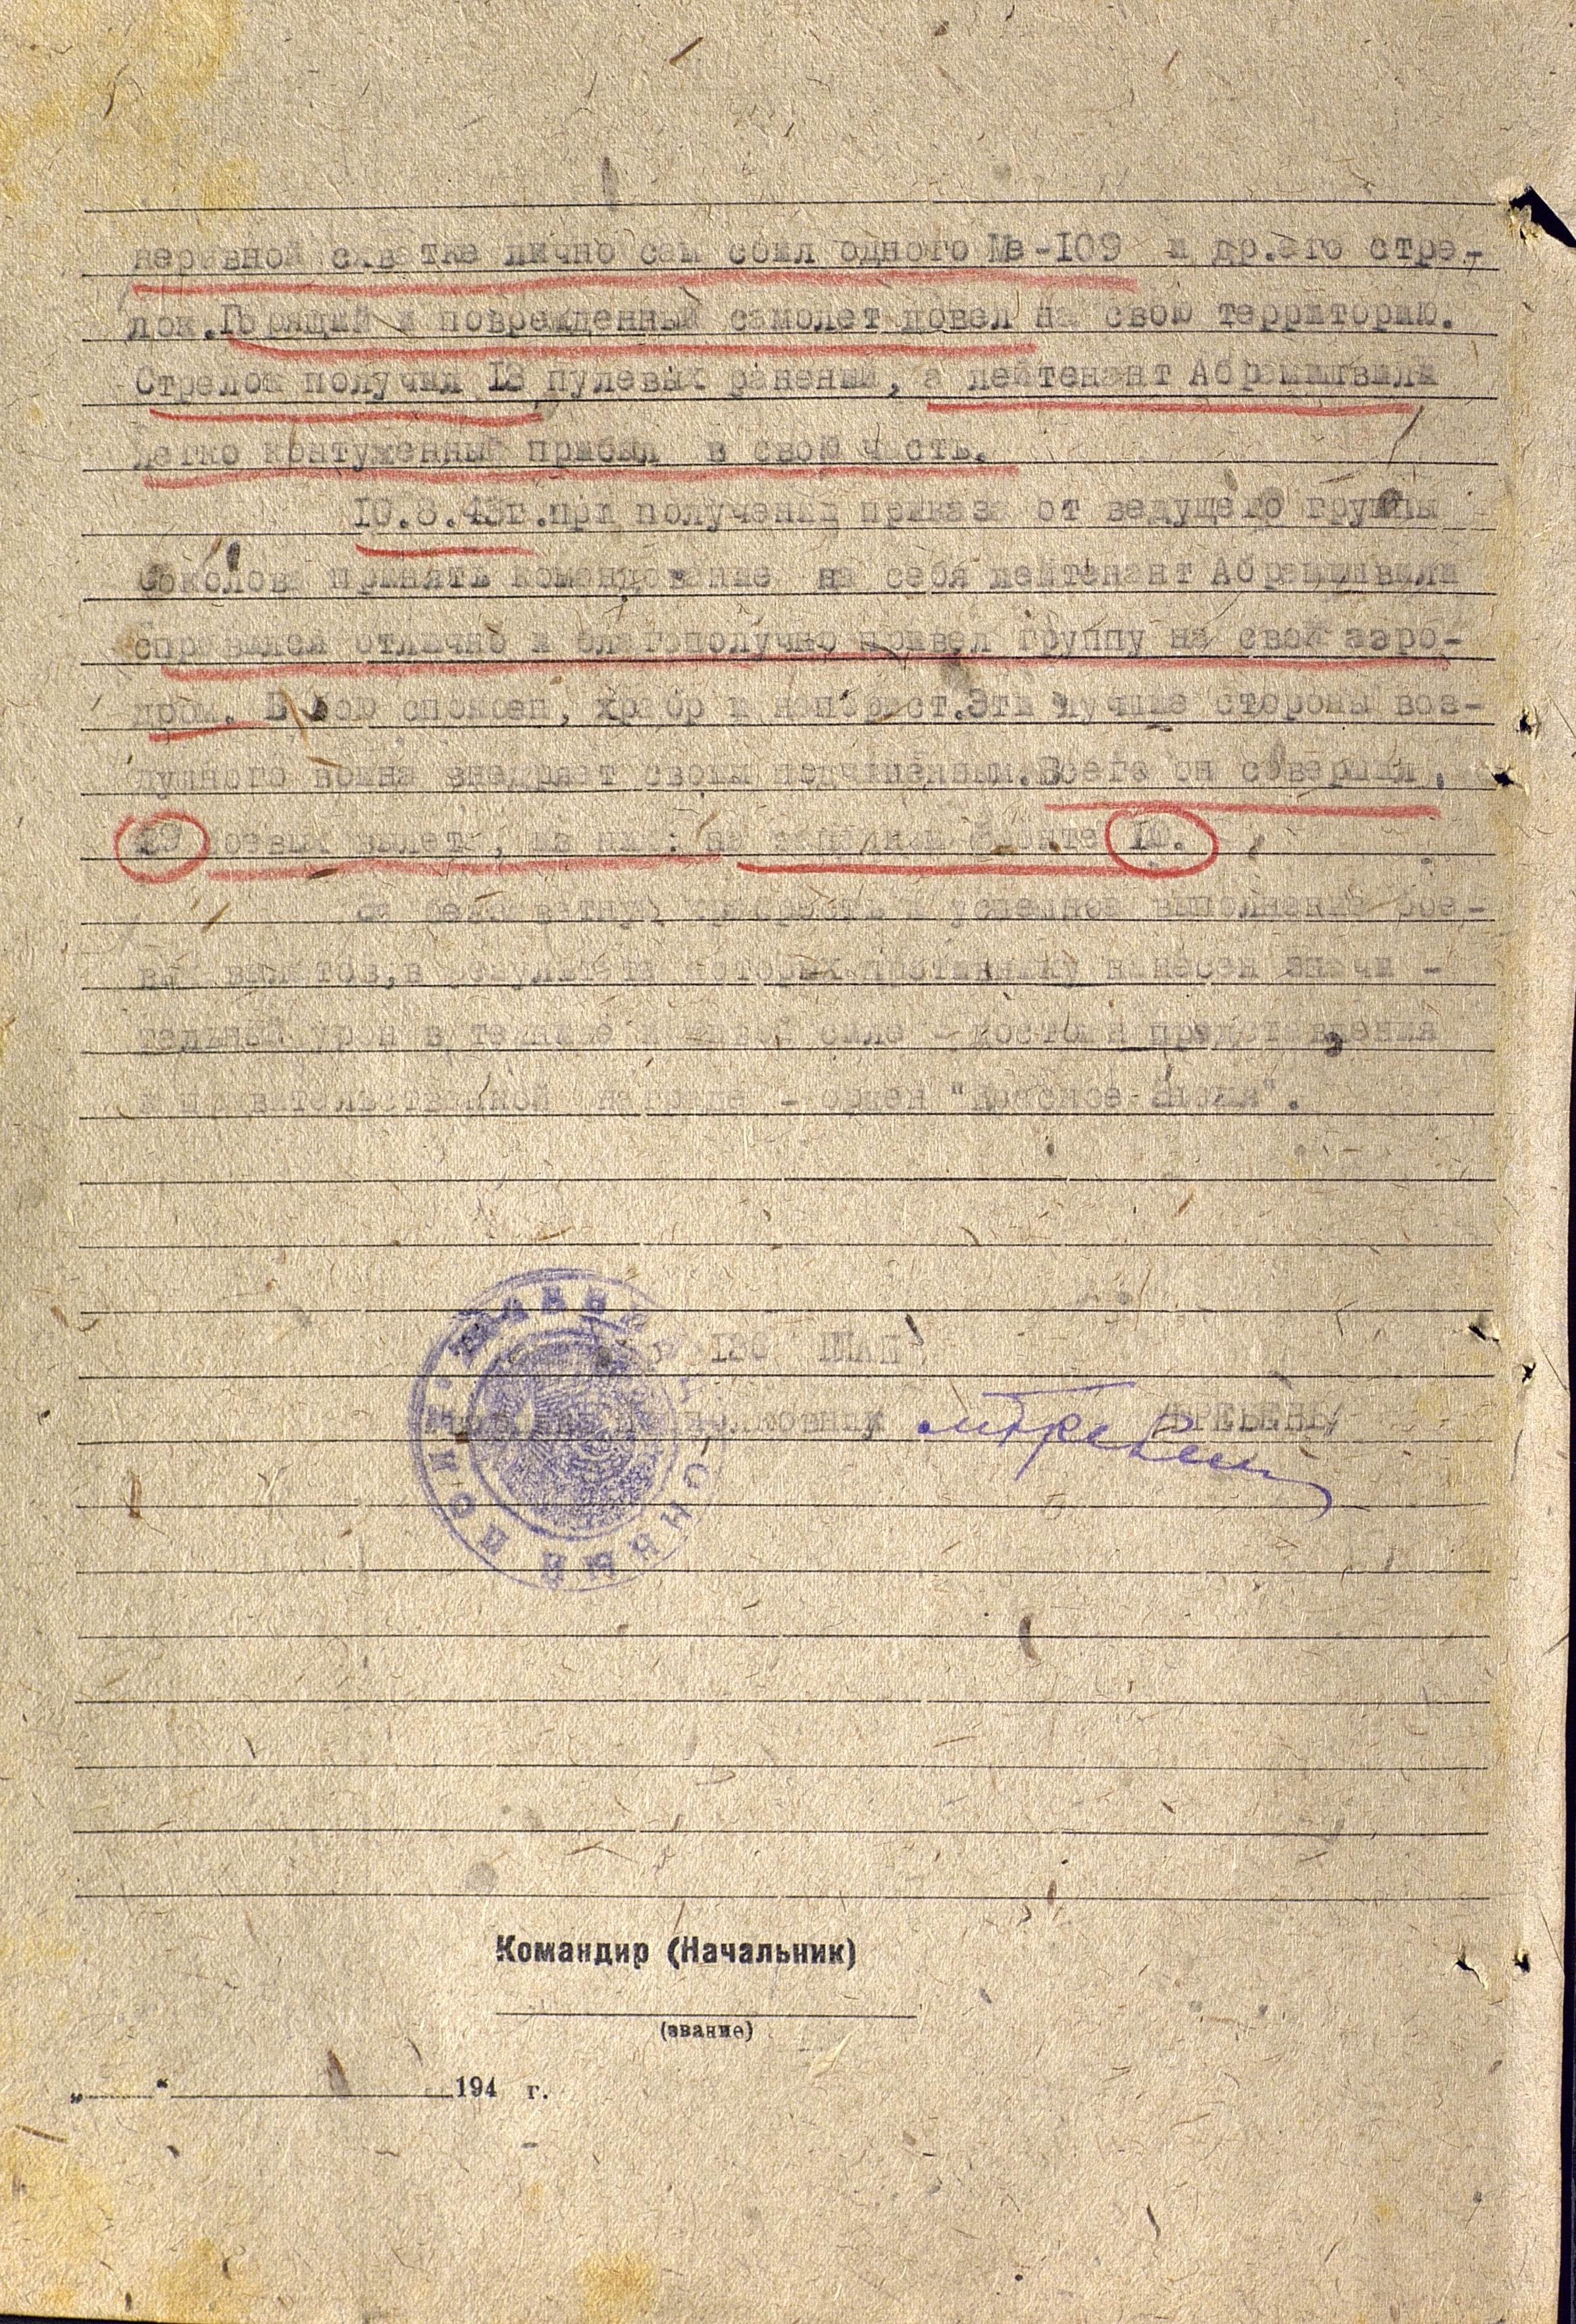 неравной схватке лично сам сбил одного Ме-109 и др.его стре-
лок.Горящий и поврежденный самолет довел на свою территорию.
Стрелок получил 18 пулевых ранений, а лейтенант Абрамишвили
легко контуженный прибыл в свою часть.
10.8.43г.при получении приказа от ведущего группы
Соколова принять командование на себя лейтенант Абрамишвили
справился отлично и благополучно привел группу на свой аэро-
дром. В бою спокоен, храбр и напорист.Эти лучшие стороны воз-
душного воина внедряет своим подчиненным.Всего он совершил
боевых вылет, из них: на фронте 10.
За беззаветную храбрость и успешное выполнение бое-
вых вылетов,в результате которых противнику нанесен значи -
тельный урон в технике и живой силе - достоин представления
к правительственной награде - орден "Красное Знамя".
ШАП
подполковник /ТРЕБЕНЬ/
Командир (Начальник)
(звание)
„ “ 194 г.